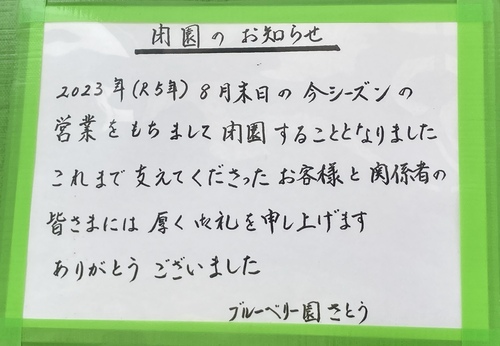 閉園のお知らせ
2023年(R5年)8月末日の今シーズンの
営業をもちまして閉園することとなりました
これまで支えてくださったお客様と関係者の
皆さまには厚く御礼を申し上げます
ありがとうございました
ブルーベリー園さとう